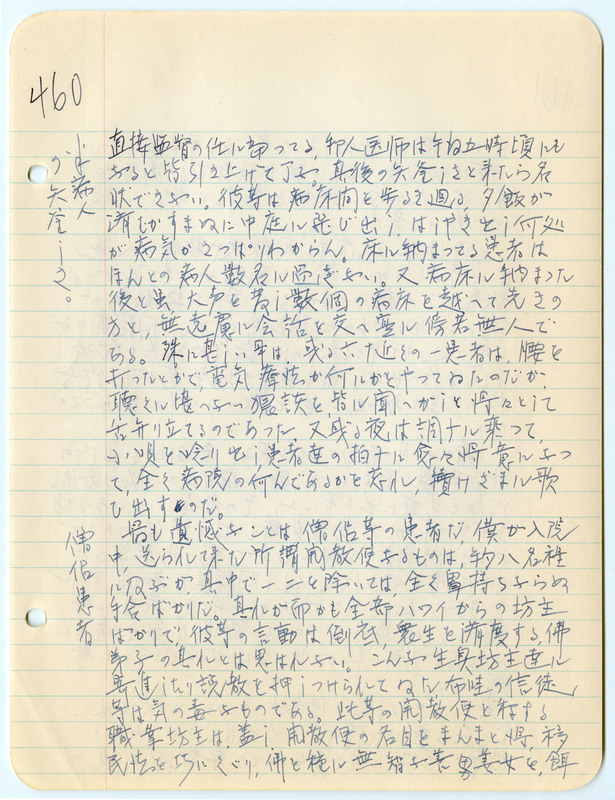 460
病人
の矢釜しさ。
直接監督の任に当つてる、邦人医師は午ね五時頃にも
なると皆引き上げて了ふ。其後の矢釜しさと来たら名
状できない。彼等は病床間を歩き廻る、夕飯が
済むかすまぬに中庭に飛び出し、はしやぎ出し何処
が病気かさつぱりわからん。床に納まつてる患者は
ほんとの病人数名に過ぎない。又病床に納まつた
後と虽、大声を若し数個の病床を越へて先きの
方と、無遠慮に会話を交へ実に傍若無人で
ある。殊に甚しい早は、或る六十近くの一患者は、腰を
打つたとかで、電気療法か何にかとやつてゐたのだが、
聴くに堪へない猥談を、皆に聞へがしと得々として
舌弁り立てるのであつた。又或る夜は調子に乗つて、
小唄を唸り出し患者達の拍手に愈々得意になつ
て、全く病院の何んであるかを忘れ、続けざまに歌
ひ出すのだ。
僧侶患者
最も遺憾なことは僧侶等の患者だ。僕が入院
中、送られて来た所謂開教使なるものは、約八名程
に及ぶが、其中で一二を除いては、全く鼻持ちならぬ
手合ばかりだ。其れが而かも全部ハワイからの坊主
ばかりで、彼等の言動は到底、衆生を済度する、佛
弟子の其れとは思はれない。こんな生臭坊主達に
寄進したり説教を押しつけられてゐた布哇の信徒
等は気の毒なものである。此等の開教使と称する
職業坊主は、蓋し開教使の名目をまんまと得、移
民法を巧にくぐり、佛を種に無智な善男善女を、餌